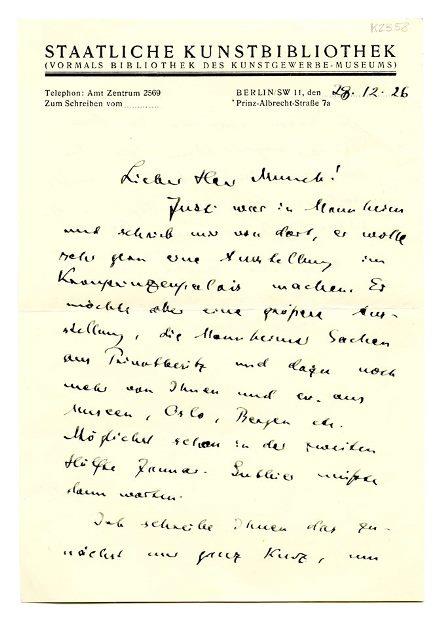 K2358
STAATLICHE KUNSTBIBLIOTHEK
(VORMALS BIBLIOTHEK DES KUNSTGEWERBE-MUSEUMS)
Telephon: Amt Zentrum 2569
Zum Schreiben vom ............
BERLIN SW 11, den 28. 12. 26
Prinz-Albrecht-Straße 7a
Lieber Herr Munch!
Justi war in Mannheim
und schrieb mir von dort, er wolle
sehr gern eine Ausstellung im
Kronprinzenpalais machen. Er
möchte aber eine größere Aus-
stellung, die Mannheimer Sachen
aus Privatbesitz und dazu noch
mehr von Ihnen und ev. aus
Museen, Oslo, Bergen etc.
Möglichst schon in der zweiten
Hälfte Januar. Gutbier müsste
dann warten.
Ich schreibe Ihnen das zu-
nächst nur ganz kurz, um